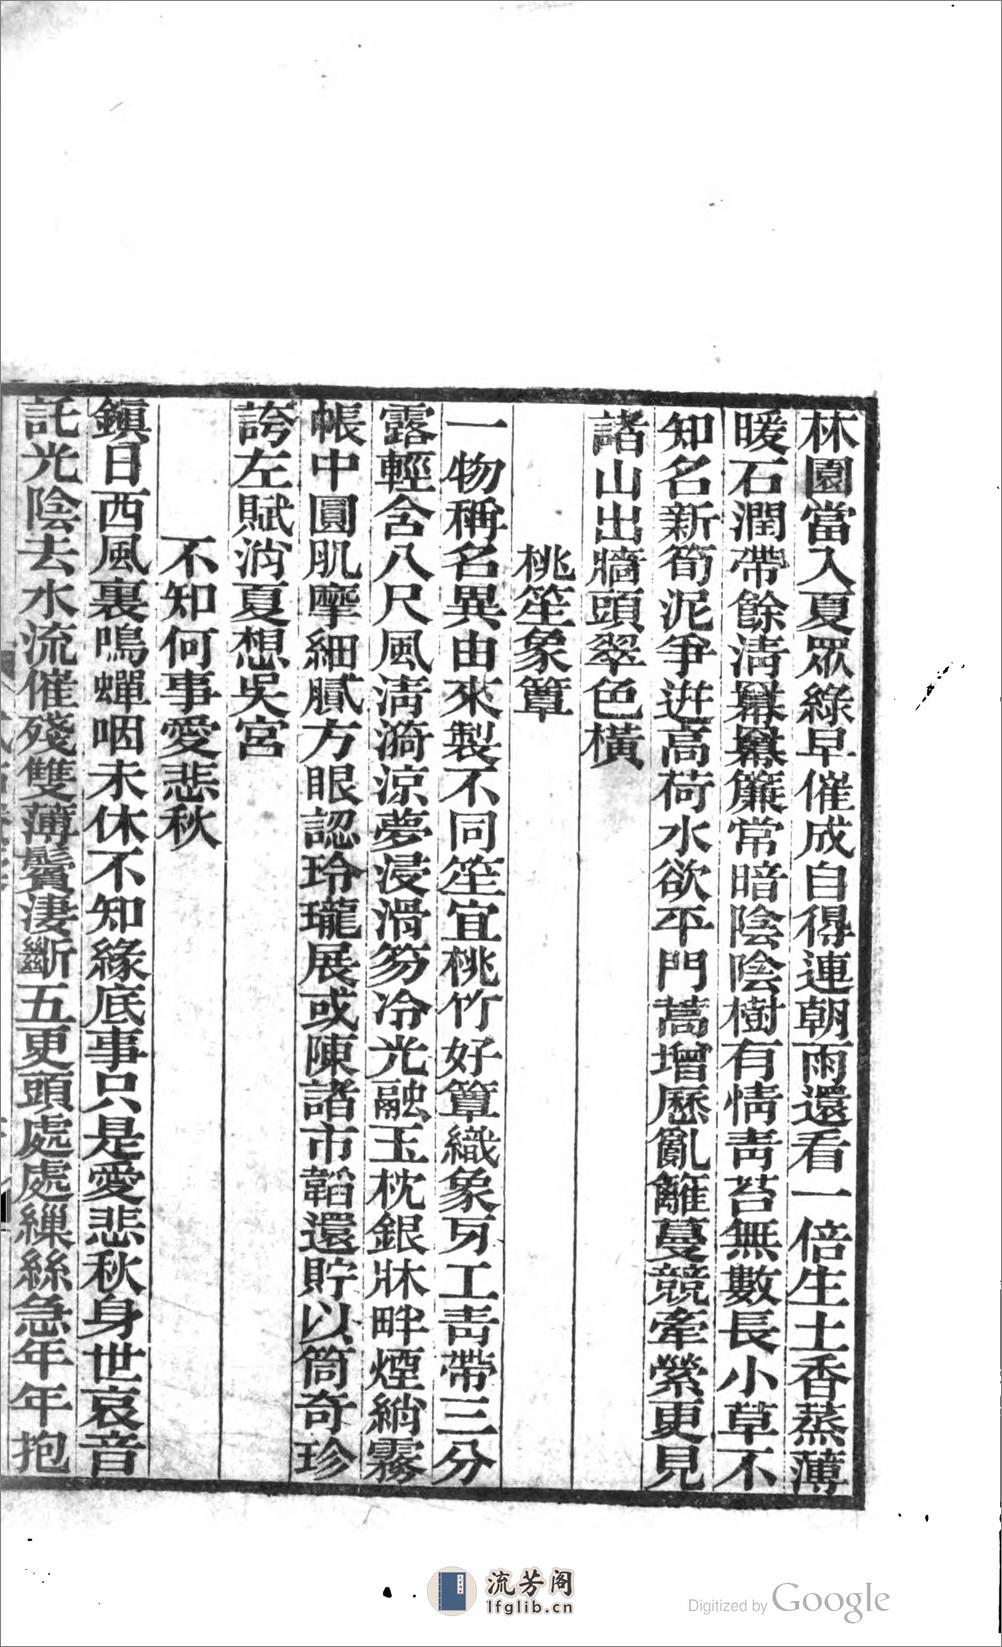 林園當入夏眾綠早催成自得連朝雨還看一倍生土香蒸薄
暖石潤帶餘淸冪冪簾常暗陰陰樹有情靑苔無數長小草不
知名新筍泥爭迸高荷水欲平門蒿增歷亂籬蔓競牽縈更見
諸山出牆頭翠色橫
桃笙象簟
一物稱名異由來製不同笙宜桃竹好簟織象牙工靑帶三分
露輕含八尺風淸漪涼夢浸滑笏冷光融玉枕銀牀畔煙綃霧
帳中圓肌摩細膩方眼認玲瓏展或陳諸市韜還貯以筒奇珍
誇左賦消夏想吳宮
不知何事愛悲秋
鎭日西風裏鳴蟬咽未休不知緣底事只是愛悲秋身世哀音
託光陰去水流催殘雙薄鬢淒斷五更頭處處繅絲急年年抱
流芳阁
lfglib.cn
Digitized by Google